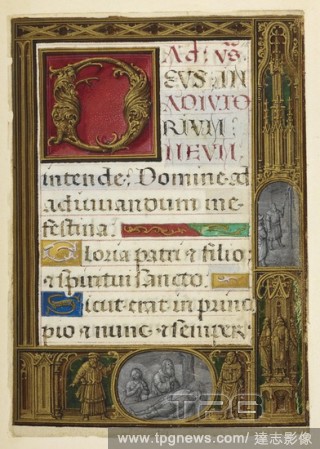 Ad vi͂s
DEUS IN
ADIUTO
RIUM
MEUM
intende: Domine ad
adiuuandum me
festina.
Gloria patri & filio:
& spiritui sancto.
Sicut erat in princi
pio & nunc & semper
TPG
www.tpgnews.com/ 達志影像